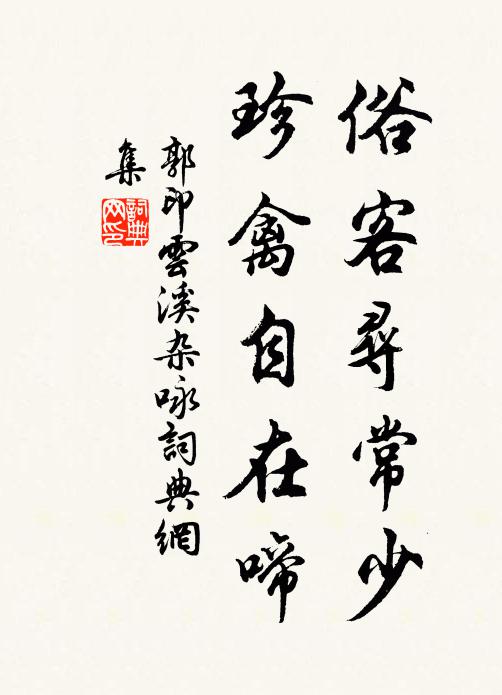 俗客尋常少
珍禽自在啼
郭印雲溪杂咏詞典網
集
詞典網印